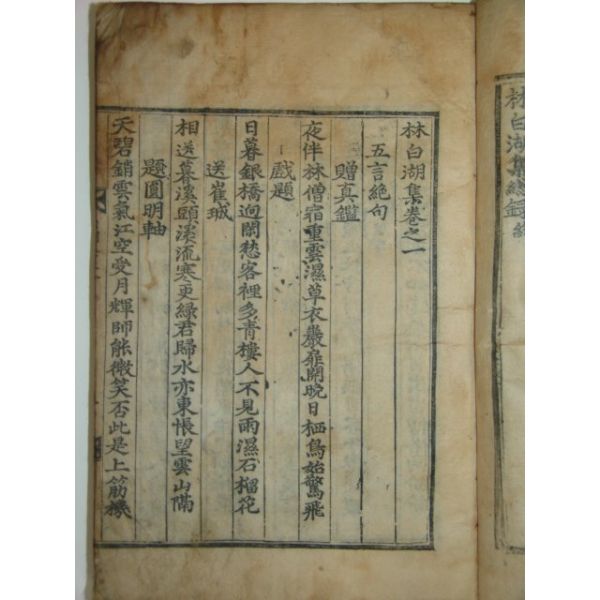 林白湖集總錄終
林白湖集卷之一
五言絶句
贈真鑑
夜伴林僧宿重雲濕草衣巖扉開晩日栖鳥始驚飛
戲題
日暮銀橋逈閑愁客裡多青樓人不見雨濕石榴花
送崔珹
相送溪頭溪流寒更綠君歸水亦東悵望雲山隔
題圓明軸
天碧銷雲氣江空受月輝師能微笑否此是上筋機